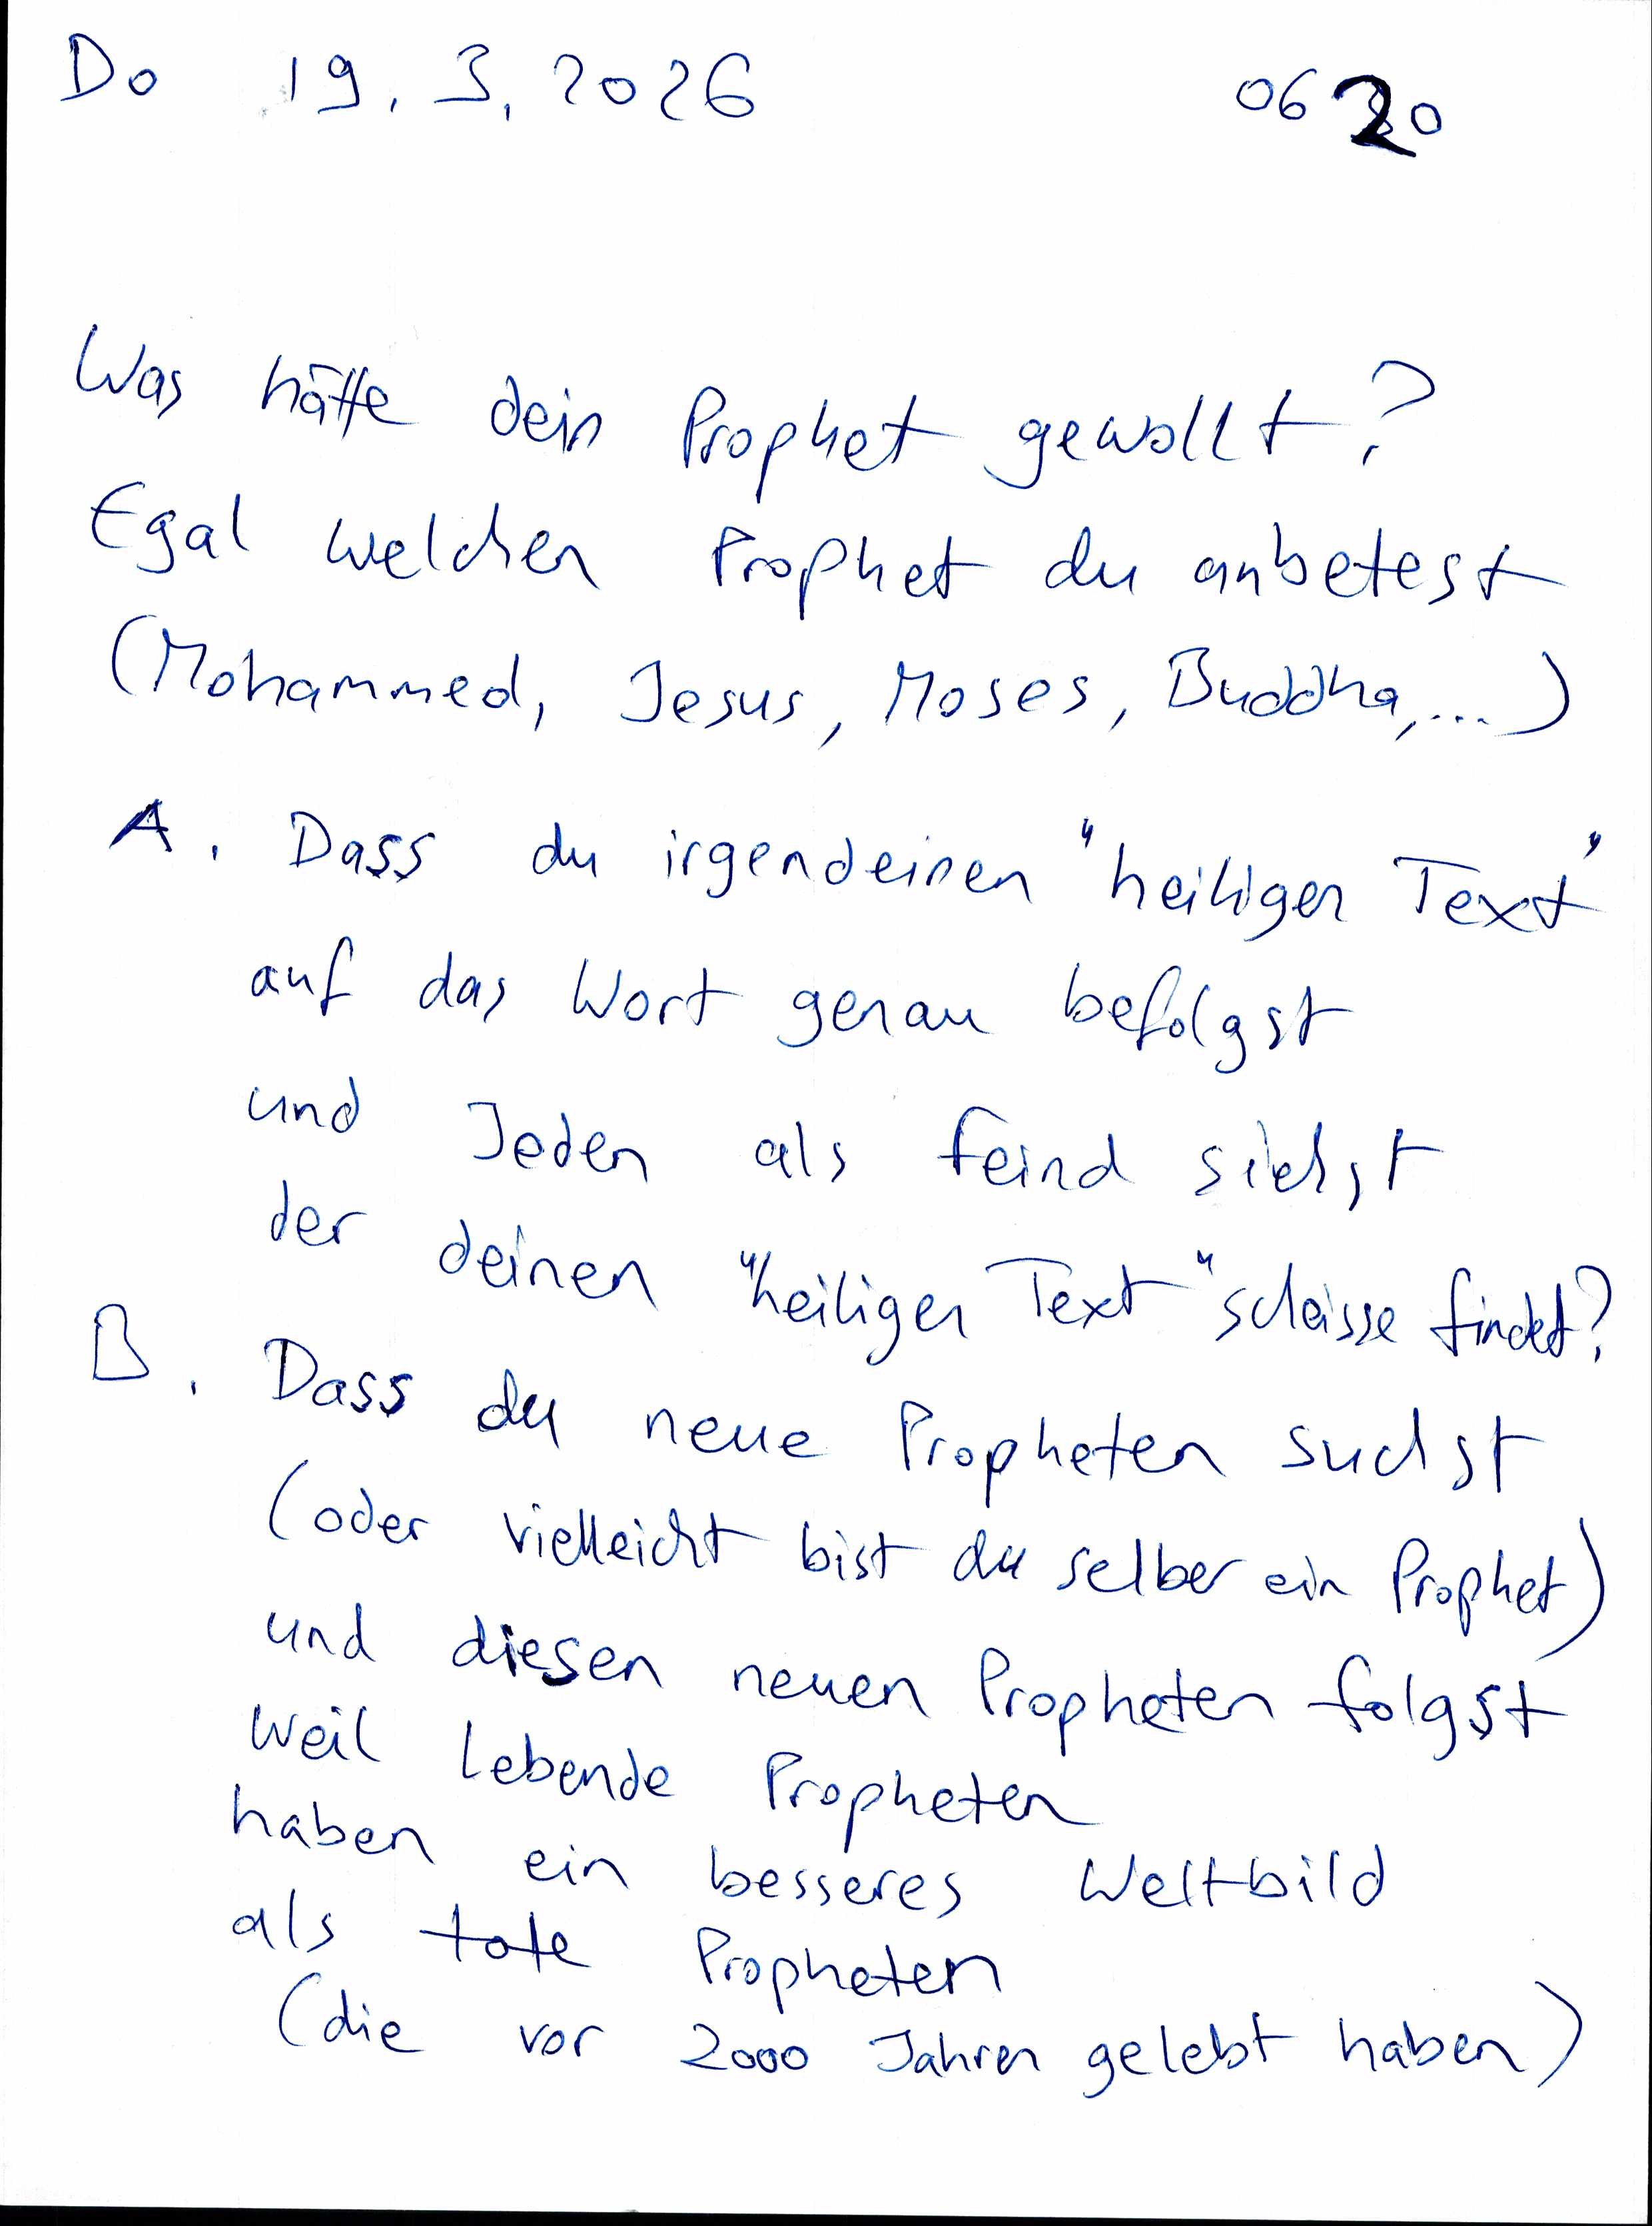 Do 19.3.2026 0620
Was hätte dein Prophet gewollt?
Egal welchen Prophet du anbetest
(Mohammed, Jesus, Moses, Buddha,...)
A. Dass du irgendeinen "heiligen Text"
auf das Wort genau befolgst
und Jeden als Feind siehst
der deinen "heiligen Text" scheisse findet?
B. Dass du neue Propheten suchst
(oder vielleicht bist du selber ein Prophet)
und diesen neuen Propheten folgst
weil lebende Propheten
haben ein besseres Weltbild
als tote Propheten
(die vor 2000 Jahren gelebt haben)